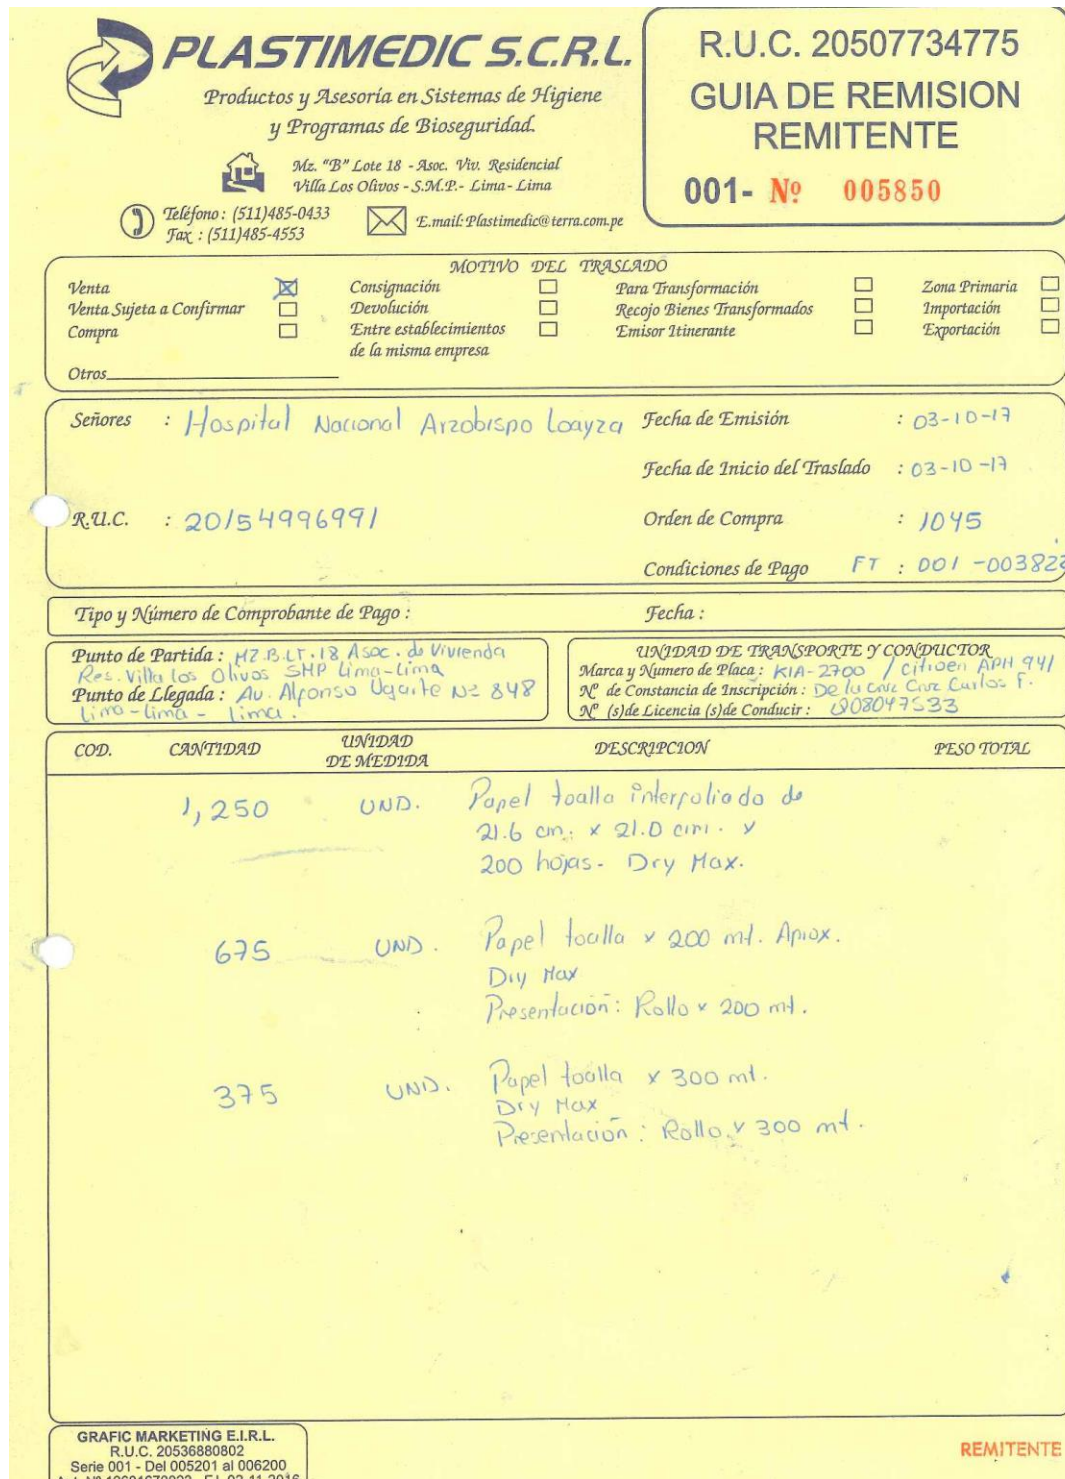 PLASTIMEDIC S.C.R.L.
Productos y Asesoría en Sistemas de Higiene
y Programas de Bioseguridad.
Mz. "B" Lote 18 - Asoc. Viv. Residencial
Villa Los Olivos - S.M.P.- Lima- Lima
Teléfono : (511)485-0433
Fax : (511)485-4553
E.mail: Plastimedic@terra.com.pe
R.U.C. 20507734775
GUIA DE REMISION
REMITENTE
001- Nº 005850
MOTIVO DEL TRASLADO
Venta Consignación Para Transformación Zona Primaria
Venta Sujeta a Confirmar Devolución Recojo Bienes Transformados Importación
Compra Entre establecimientos Emisor Itinerante Exportación
de la misma empresa
Otros
Señores : Hospital Nacional Arzobispo Loayza Fecha de Emisión : 03-10-17
Fecha de Inicio del Traslado : 03-10-17
R.U.C. : 20154996991 Orden de Compra : 1045
Condiciones de Pago FT : 001 -003822
Tipo y Número de Comprobante de Pago : Fecha :
Punto de Partida : MZ.B.LT.18 Asoc. de Vivienda
Res. Villa los Olivos SMP Lima-Lima
Punto de Llegada : Av. Alfonso Ugarte Nº 848
Lima-Lima - Lima.
UNIDAD DE TRANSPORTE Y CONDUCTOR
Marca y Numero de Placa : KIA-2700 / Citroen APH 941
Nº de Constancia de Inscripción : De la Cruz Cruz Carlos F.
Nº (s)de Licencia (s)de Conducir : Q08047533
COD. CANTIDAD UNIDAD DE MEDIDA DESCRIPCION PESO TOTAL
1,250 UND. Papel toalla interfoliado de
21.6 cm. x 21.0 cm. x
200 hojas- Dry Max.
675 UND. Papel toalla x 200 mt. Aprox.
Dry Max
Presentación: Rollo x 200 mt.
375 UND. Papel toalla x 300 mt.
Dry Max
Presentación: Rollo x 300 mt.
GRAFIC MARKETING E.I.R.L.
R.U.C. 20536880802
Serie 001 - Del 005201 al 006200
REMITENTE